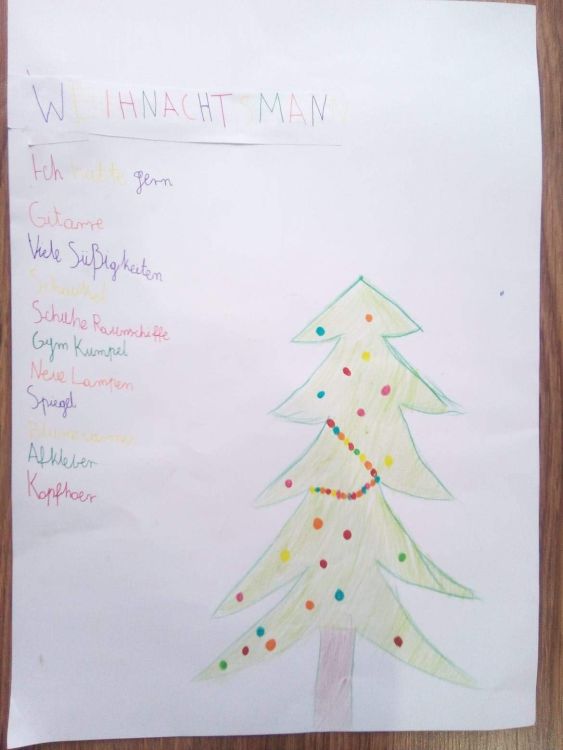 WEIHNACHTSMANN
Ich hatte gern
Gitarre
Viele Süßigkeiten
Schaukel
Schuhe Raumschiffe
Gym Kumpel
Neue Lampen
Spiegel
Afkleber
Kopfhoer